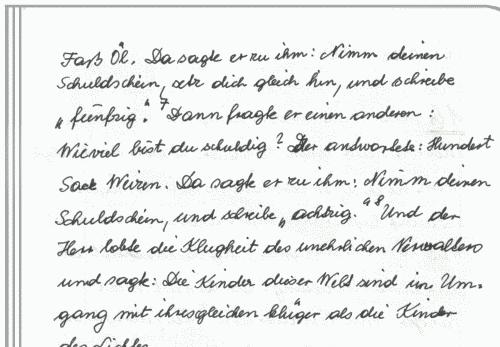 Faß Öl. Da sagte er zu ihm: Nimm deinen
Schuldschein, setz dich gleich hin, und schreibe
„fünfzig." 7 Dann fragte er einen anderen:
Wieviel bist du schuldig? Der antwortete: Hundert
Sack Weizen. Da sagte er zu ihm: Nimm deinen
Schuldschein, und schreibe „achtzig." 8 Und der
Herr lobte die Klugheit des unehrlichen Verwalters
und sagte: Die Kinder dieser Welt sind im Um-
gang mit ihresgleichen klüger als die Kinder
des Lichtes